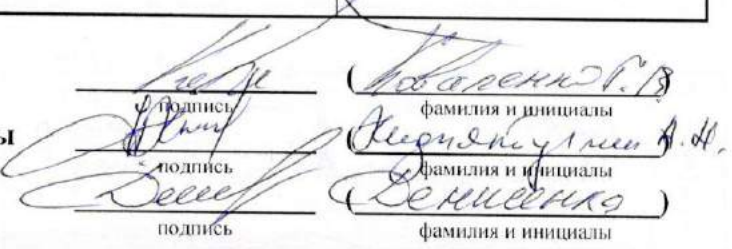 (Коваленко Г.В)
подпись фамилия и инициалы
ы (Хидиятуллин А.Н.
подпись фамилия и инициалы
(Денисенко)
подпись фамилия и инициалы